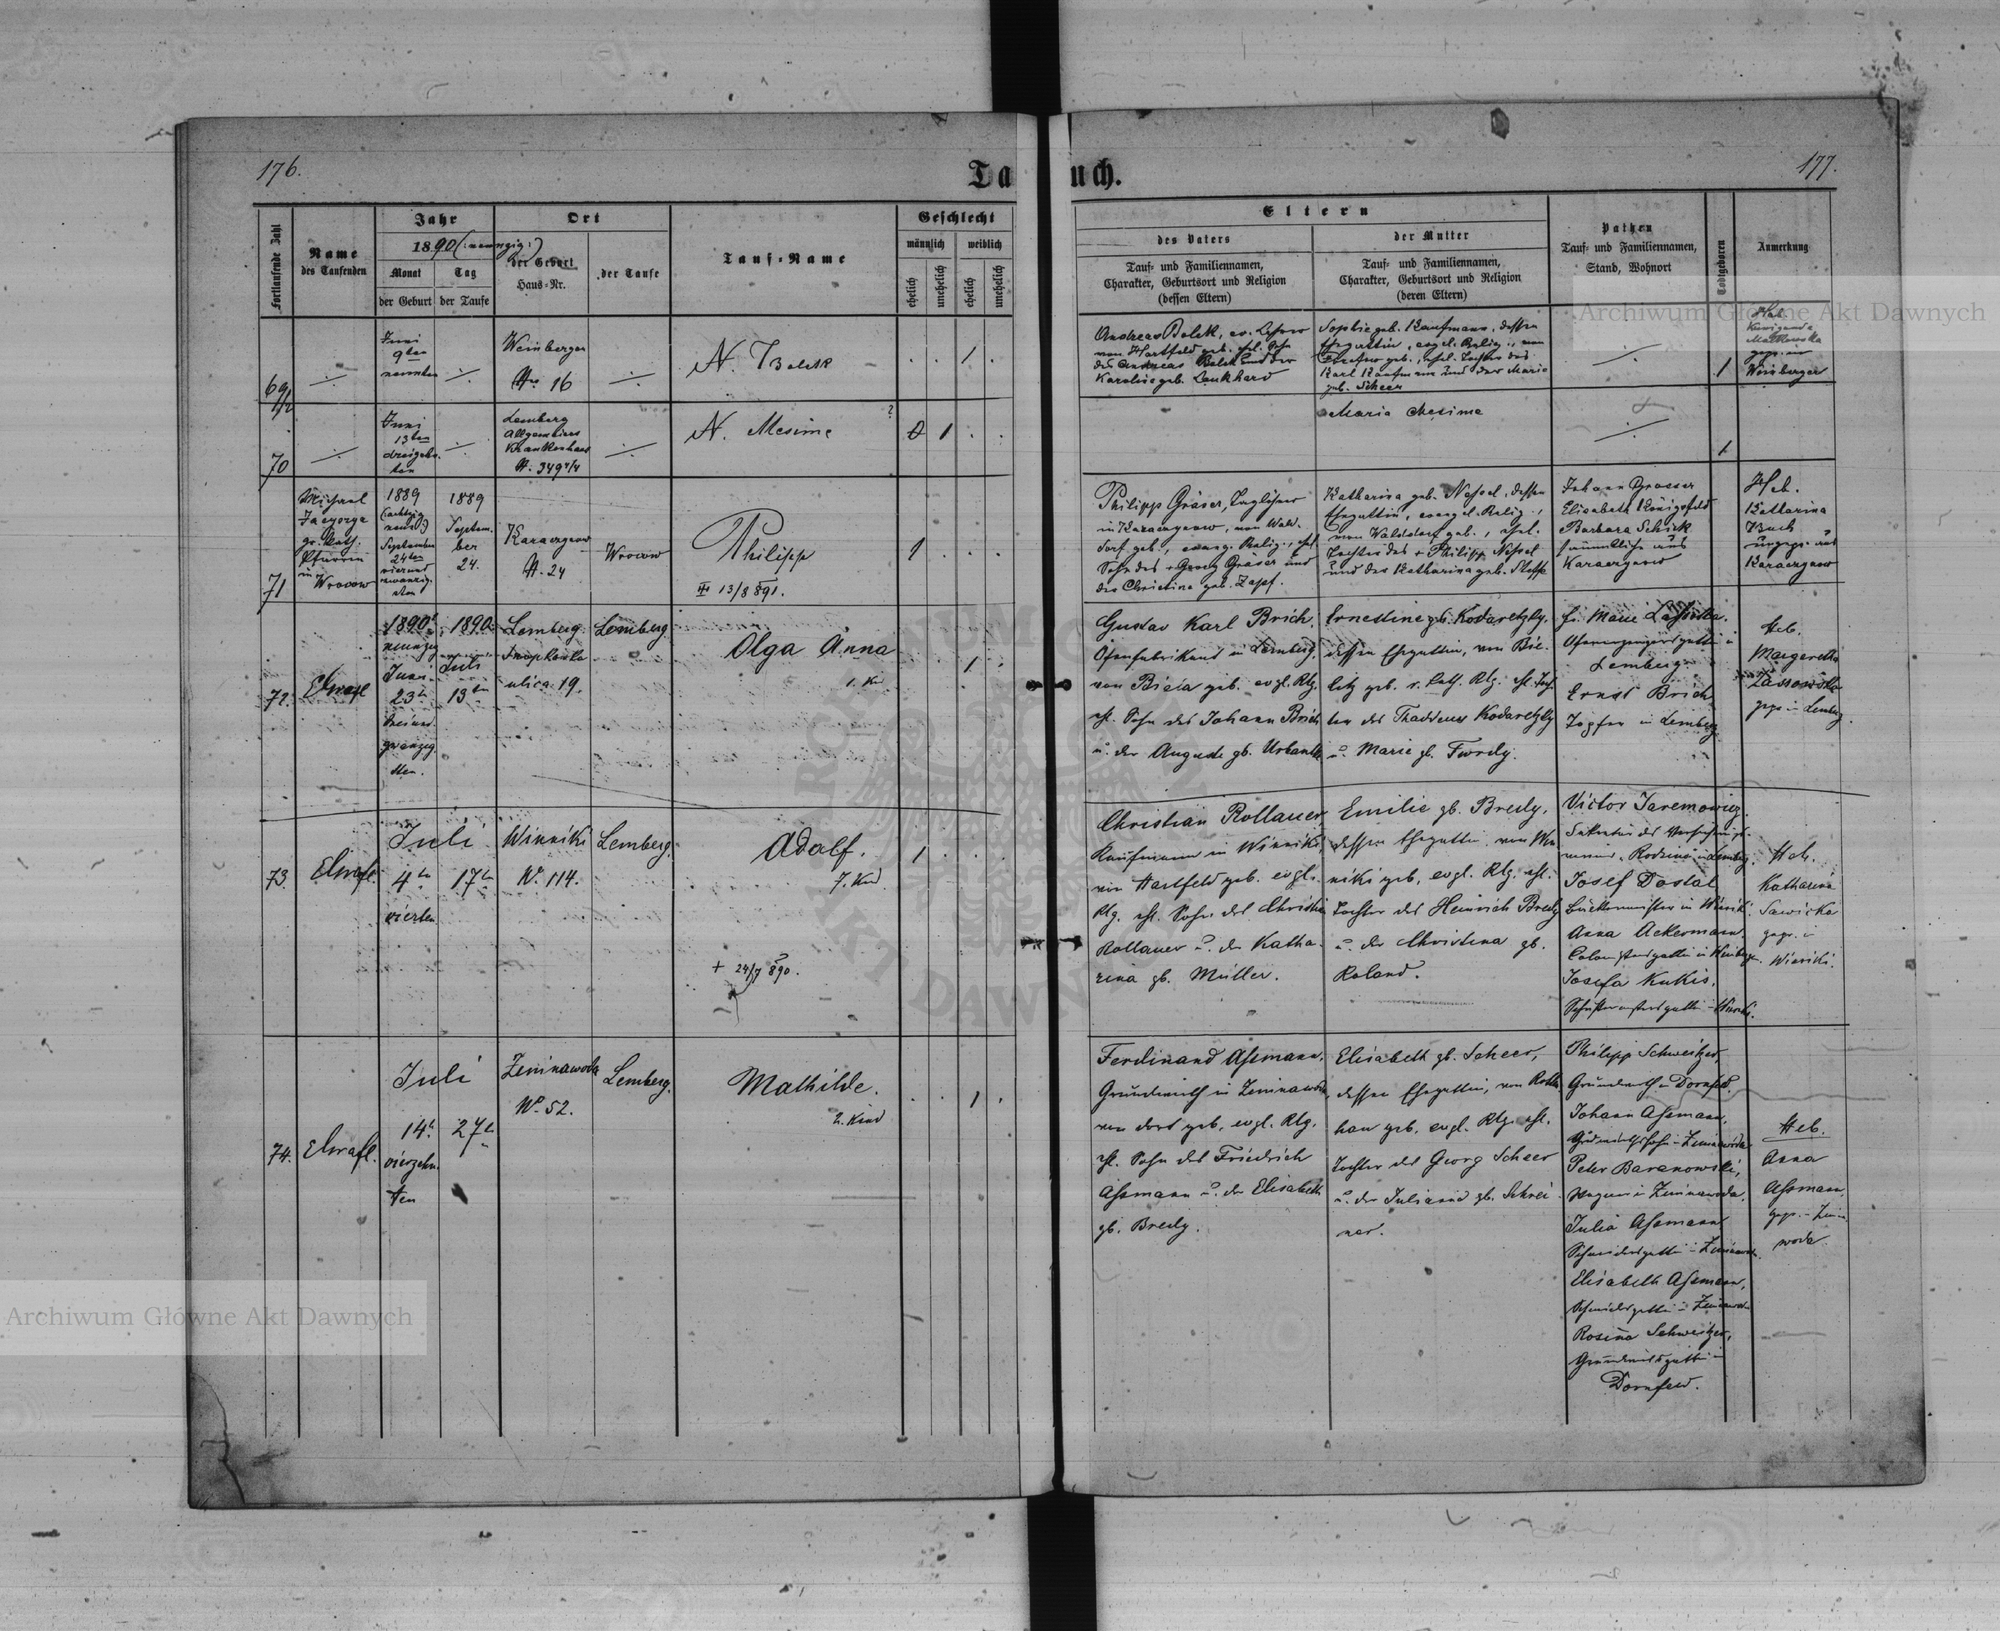 176.
Taufbuch.
177.
Fortlaufende Zahl
Name
des Taufenden
Jahr
1890 (: neunzig :)
Monat
der Geburt
Tag
der Taufe
Ort
der Geburt
Haus-Nr.
der Taufe
Tauf-Name
Geschlecht
männlich
weiblich
ehelich
unehelich
ehelich
unehelich
Eltern
des Vaters
Tauf- und Familiennamen,
Charakter, Geburtsort und Religion
(dessen Eltern)
der Mutter
Tauf- und Familiennamen,
Charakter, Geburtsort und Religion
(deren Eltern)
Pathen
Tauf- und Familiennamen,
Stand, Wohnort
Todtgeboren
Anmerkung
69/2
Juni
9ten
neunten
Weinbergen
No 16
N. Bolek
1
Andreas Bolek, ev. Lehrer
von Hartfeld geb. ehl. Sohn
des Andreas Bolek und der
Karoline geb. Lankhard
Sophie geb. Kaufmann, dessen
Ehegattin, evgel. Relig., von
geb., ehel. Tochter des
Karl Kaufmann und der Marie
geb. Scheer
1
Heb.
Kunigunde
Malkowska
gepr. in
Weinbergen
70
Juni
13ten
dreizehn-
ten
Lemberg
Allgemeines
Krankenhaus
N. 349 4/4
N. Mesime
?
1
Maria Mesime
1
71
Michael
Jacyorga
gr. kath.
Pfarrer
in
Wrocow
1889
(:achtzig
neun:)
September
24ten
vierund
zwanzig-
sten
1889
Septem-
ber
24.
Karaczynow
N. 24
Wrocow
Philipp
13/8 891.
1
Philipp Gräser, Taglöhner
in Karaczynow, von Wald-
dorf geb., evang. Relig., ehel.
Sohn des + Georg Gräser und
der Christine geb. Zapf.
Katharina geb. Nessel, dessen
Ehegattin, evangel. Relig.,
von Walddorf geb., ehel.
Tochter des + Philipp Nessel
und der Katharina geb.
Johann Prosser
Elisabeth Königsfeld
Barbara Schick
sämmtliche aus
Karaczynow
Heb.
Katharina
Buch
ungepr. aus
Karaczynow
72.
Elwasl
1890
neunzig
Juni
23ten
dreiund
zwanzig
sten.
1890
Juli
13ten
Lemberg
ulica 19.
Lemberg
Olga Anna
1. Kd
1
Gustav Karl Brich,
Ofenfabrikant in Lemberg,
von Biala geb. evgl. Rlg.
ehl. Sohn des Johann Brich
u. der Auguste gb. Urbanke
Ernestine gb. Kodaretzky,
dessen Ehegattin, von Bie-
litz geb. r. kath. Rlg. ehl. Toch-
ter des Thaddeus Kodaretzky
u. Marie gb. Twrdy.
Lemberg
Ernst Brich
Töpfer in Lemberg
Heb.
Margaretha
Lassowska
gepr. in Lemberg.
73.
Elwasl.
Juli
4ten
vierten
17ten
Winniki
No. 114.
Lemberg.
Adolf.
7. Kd
+ 24/7 890.
1
Christian Rollauer,
Kaufmann in Winniki,
von Hartfeld geb. evgl.
Rlg. ehl. Sohn des Christian
Rollauer u. der Katha-
rina gb. Müller.
Emilie gb. Bredy,
dessen Ehegattin von Win-
niki geb. evgl. Rlg. ehl.
Tochter des Heinrich Bredy
u. der Christina gb.
Roland.
Victor Jaremowicz
Josef Dostal
Anna Ackermann
Josefa Kukis,
Heb.
Katharina
Sawicka
gepr. in
Winniki.
74.
Elwasl.
Juli
14ten
vierzehn-
ten
27ten
Zimnawoda
No. 52.
Lemberg.
Mathilde.
2. Kind
1
Ferdinand Assmann,
Grundwirth in Zimnawoda,
von dort geb., evgl. Rlg.
ehl. Sohn des Friedrich
Assmann u. der Elisabeth
gb. Bredy.
Elisabeth gb. Scheer,
dessen Ehegattin, von Rott-
han geb. evgl. Rlg. ehl.
Tochter des Georg Scheer
u. der Juliana gb. Schrei-
ner.
Philipp Schweitzer
Grundwirth in Dornfeld.
Johann Assmann,
Grundwirthssohn - Zimnawoda
Peter Baranowski,
Wagner in Zimnawoda.
Julia Assmann
Elisabeth Assmann,
Rosina Schweitzer,
Grundwirthsgattin in
Dornfeld.
Heb.
Anna
Assmann,
gepr. - Zimna
woda.
Archiwum Główne Akt Dawnych
Archiwum Główne Akt Dawnych